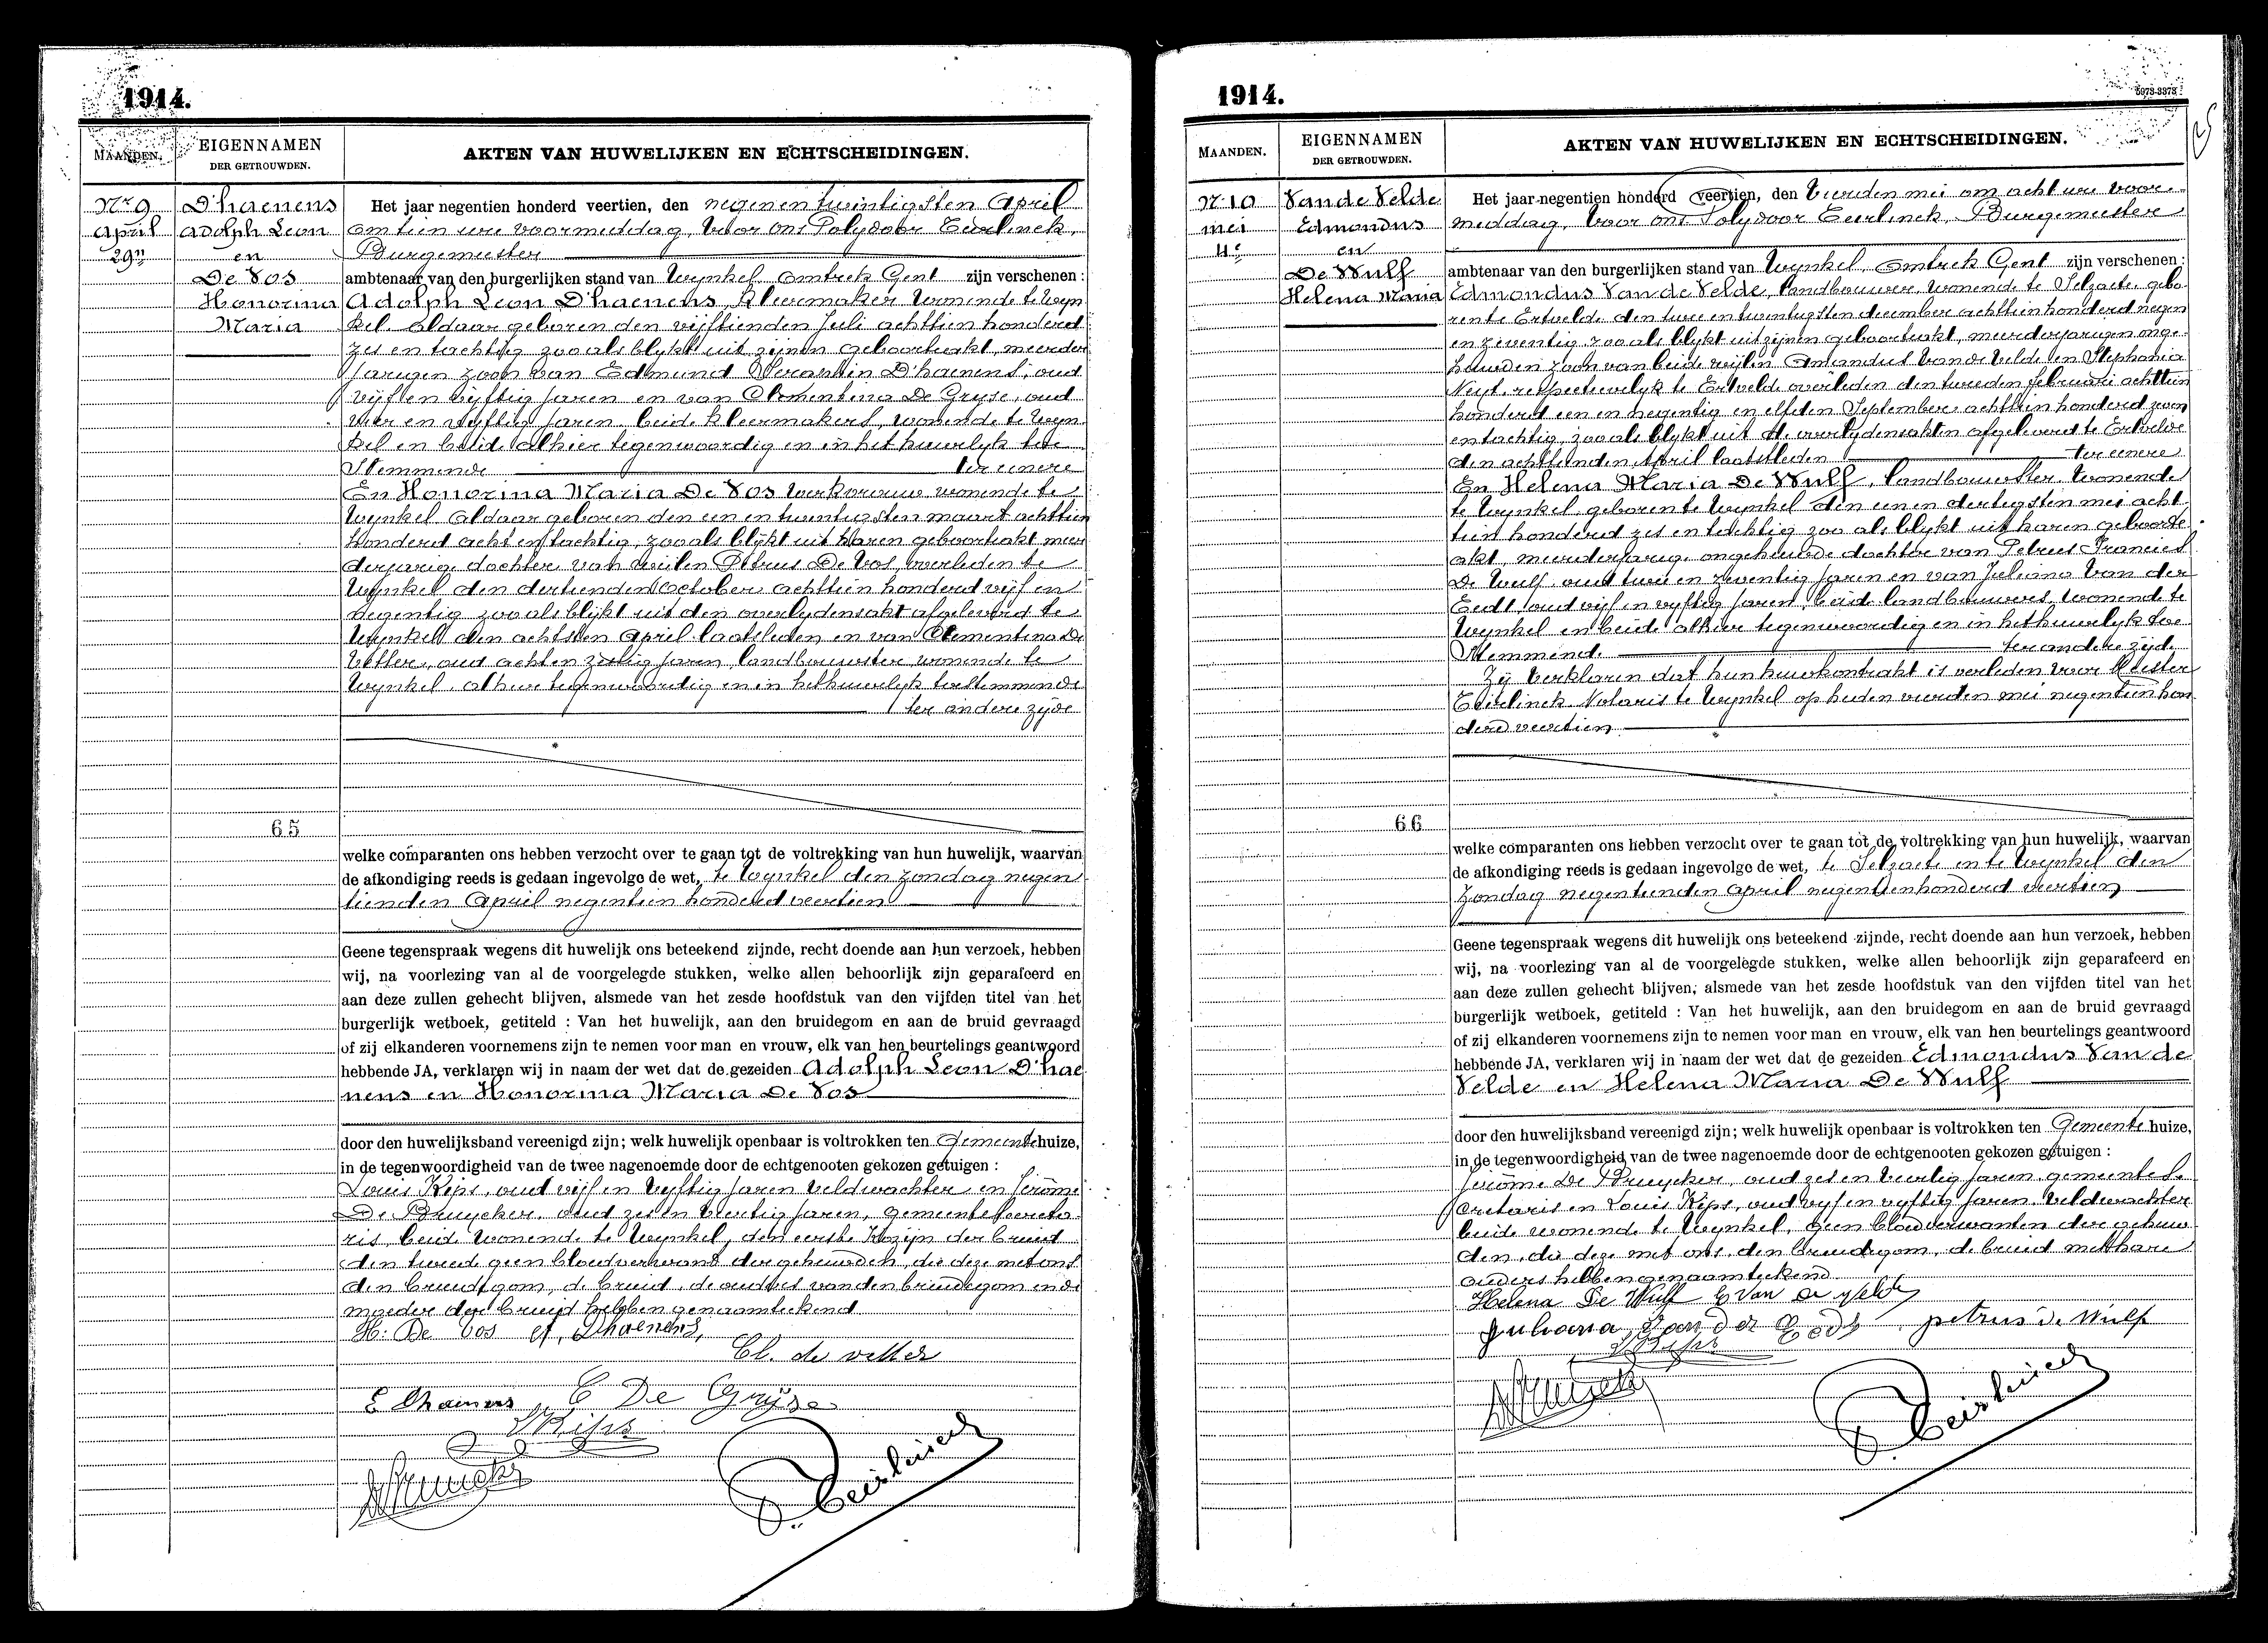 1914.
MAANDEN.
EIGENNAMEN
DER GETROUWDEN.
AKTEN VAN HUWELIJKEN EN ECHTSCHEIDINGEN.
Nr 9
April
29n
D'haenens
Adolph Leon
en
De Vos
Honorina
Maria
65
Het jaar negentien honderd veertien, den negenentwintigsten April
om tien ure voormiddag, voor ons Polydoor Eeirlinck,
Burgemeester
ambtenaar van den burgerlijken stand van Wynkel, omtrek Gent zijn verschenen :
Adolph Leon D'haenens, kleermaker wonende te Wyn
kel aldaar geboren den vijftienden Juli achttien honderd
zes en tachtig zoo als blykt uit zijnen geboorteakt, meerder
jarigen zoon van Edmund D'haenens, oud
vijf en vijftig jaren en van Clementina De Gryse, oud
vier en vyftig jaren beide kleermakers, wonende te Wyn
kel en beide alhier tegenwoordig en in het huwelyk toe
stemmende ter eenere
En Honorina Maria De Vos werkvrouw wonende te
Wynkel aldaar geboren den een en twintigsten maart achttien
honderd acht en tachtig, zoo als blijkt uit haren geboorteakt meer
derjarige dochter van wijlen Petrus De Vos, overleden te
Wynkel den dertienden October achttien honderd vijf en
negentig zoo als blijkt uit den overlydensakt afgeleverd te
Wynkel den achtsten April laatsleden en van Clementina De
Vetter, oud acht en zestig jaren, landbouwster wonende te
Wynkel, alhier tegenwoordig en in het huwelyk toestemmende
ter andere zijde
welke comparanten ons hebben verzocht over te gaan tot de voltrekking van hun huwelijk, waarvan
de afkondiging reeds is gedaan ingevolge de wet, te Wynkel den zondag negen
tienden April negentien honderd veertien
Geene tegenspraak wegens dit huwelijk ons beteekend zijnde, recht doende aan hun verzoek, hebben
wij, na voorlezing van al de voorgelegde stukken, welke allen behoorlijk zijn geparafeerd en
aan deze zullen gehecht blijven, alsmede van het zesde hoofdstuk van den vijfden titel van het
burgerlijk wetboek, getiteld : Van het huwelijk, aan den bruidegom en aan de bruid gevraagd
of zij elkanderen voornemens zijn te nemen voor man en vrouw, elk van hen beurtelings geantwoord
hebbende JA, verklaren wij in naam der wet dat de gezeiden Adolph Leon D'hae
nens en Honorina Maria De Vos
door den huwelijksband vereenigd zijn; welk huwelijk openbaar is voltrokken ten Gemeentehuize,
in de tegenwoordigheid van de twee nagenoemde door de echtgenooten gekozen getuigen :
Louis Kips, oud vijf en vyftig jaren veldwachter en Jerôme
De Bruycker, oud zes en veertig jaren, gemeentesecreta
ris, beide wonende te Wynkel, den eerste kozijn der bruid
den tweede geen bloedverwant der gehuwden, die deze met ons
den bruidegom, de bruid, de ouders van den bruidegom en de
moeder der bruid hebben genaamteekend
H. De Vos A. Dhaenens,
Cl. de vetter
E Dhaenens C De Gryse
L Kips
P. Eeirlinck
1914.
MAANDEN.
EIGENNAMEN
DER GETROUWDEN.
AKTEN VAN HUWELIJKEN EN ECHTSCHEIDINGEN.
Nr 10
mei
4e
Van de Velde
Edmondus
en
De Wulf
Helena Maria
66
Het jaar negentien honderd veertien, den vierden mei om acht ure voor
middag, voor ons Polydoor Eeirlinck, Burgemeester
ambtenaar van den burgerlijken stand van Wynkel, omtrek Gent zijn verschenen :
Edmondus Van de Velde, landbouwer, wonende te Selzaete gebo
ren te Ertvelde den twee en twintigsten december achttien honderd negen
en zeventig zoo als blykt uit zijnen geboorteakt, meerderjarigen onge
huwden zoon van beide wijlen Amandus Van de Velde en Stephania
Nuyt, respectievelyk te Ertvelde overleden den tweeden februari achttien
honderd een en negentig en elfden September achttien honderd zeven
en tachtig, zoo als blykt uit de overlydensakten afgeleverd te Ertvelde
den achttienden April laatstleden ter eenere
En Helena Maria De Wulf, landbouwster, wonende
te Wynkel, geboren te Wynkel den een en dertigsten mei acht
tien honderd zes en tachtig zoo als blykt uit haren geboorte
akt, meerderjarige ongehuwde dochter van Petrus Francies
De Wulf oud twee en zeventig jaren en van Juliana Van der
Eedt, oud vijf en vyftig jaren, beide landbouwers, wonende te
Wynkel en beide alhier tegenwoordig en in het huwelyk toe
stemmend ter andere zijde
Zij verklaren dat hun huwkontrakt is verleden voor Meester
Eeirlinck Notaris te Wynkel op heden vierden mei negentien hon
derd veertien
welke comparanten ons hebben verzocht over te gaan tot de voltrekking van hun huwelijk, waarvan
de afkondiging reeds is gedaan ingevolge de wet, te Selzaete en te Wynkel den
Zondag negentienden April negentienhonderd veertien
Geene tegenspraak wegens dit huwelijk ons beteekend zijnde, recht doende aan hun verzoek, hebben
wij, na voorlezing van al de voorgelegde stukken, welke allen behoorlijk zijn geparafeerd en
aan deze zullen gehecht blijven, alsmede van het zesde hoofdstuk van den vijfden titel van het
burgerlijk wetboek, getiteld : Van het huwelijk, aan den bruidegom en aan de bruid gevraagd
of zij elkanderen voornemens zijn te nemen voor man en vrouw, elk van hen beurtelings geantwoord
hebbende JA, verklaren wij in naam der wet dat de gezeiden Edmondus Van de
Velde en Helena Maria De Wulf
door den huwelijksband vereenigd zijn; welk huwelijk openbaar is voltrokken ten Gemeentehuize,
in de tegenwoordigheid van de twee nagenoemde door de echtgenooten gekozen getuigen :
Jerôme De Bruycker, oud zes en veertig jaren, gemeente se
cretaris en Louis Kips, oud vyf en vyftig jaren veldwachter
beide wonende te Wynkel, geen bloedverwanten der gehuw
den, die deze met ons, den bruidegom, de bruid met hare
ouders hebben genaamteekend
Helena De Wulf E Van de velde
Juliana Van der Eedt petrus de Wulf
L Kips
P. Eeirlinck